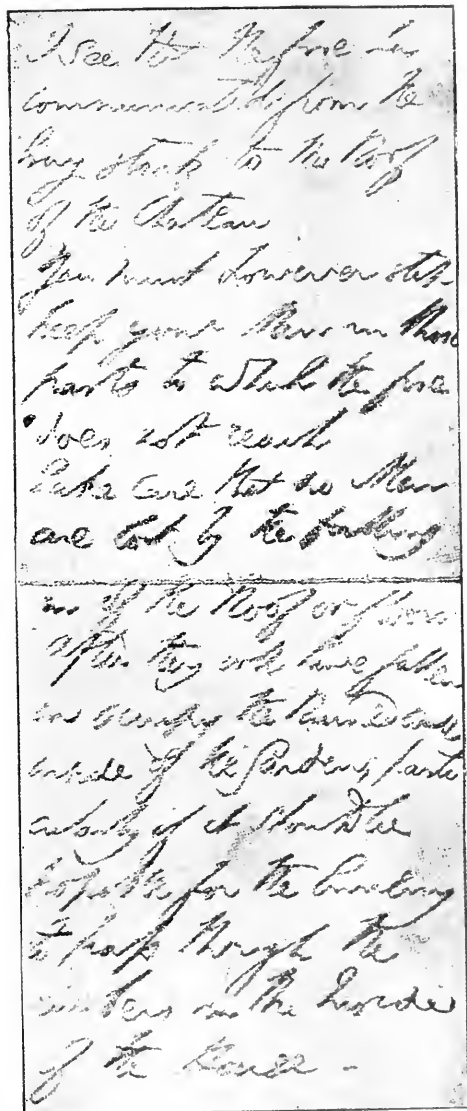 I see that the fire has
communicated from the
hay stack to the Roof
of the Chateau
You must however still
keep your Men in those
parts to which the fire
does not reach
Take care that no Men
are lost by the falling
in of the Roof or floors
After they will have fallen
in occupy the Ruined walls
inside of the Garden; parti
cularly if it should be
possible for the Enemy
to pass through the
Embers in the Inside
of the House -